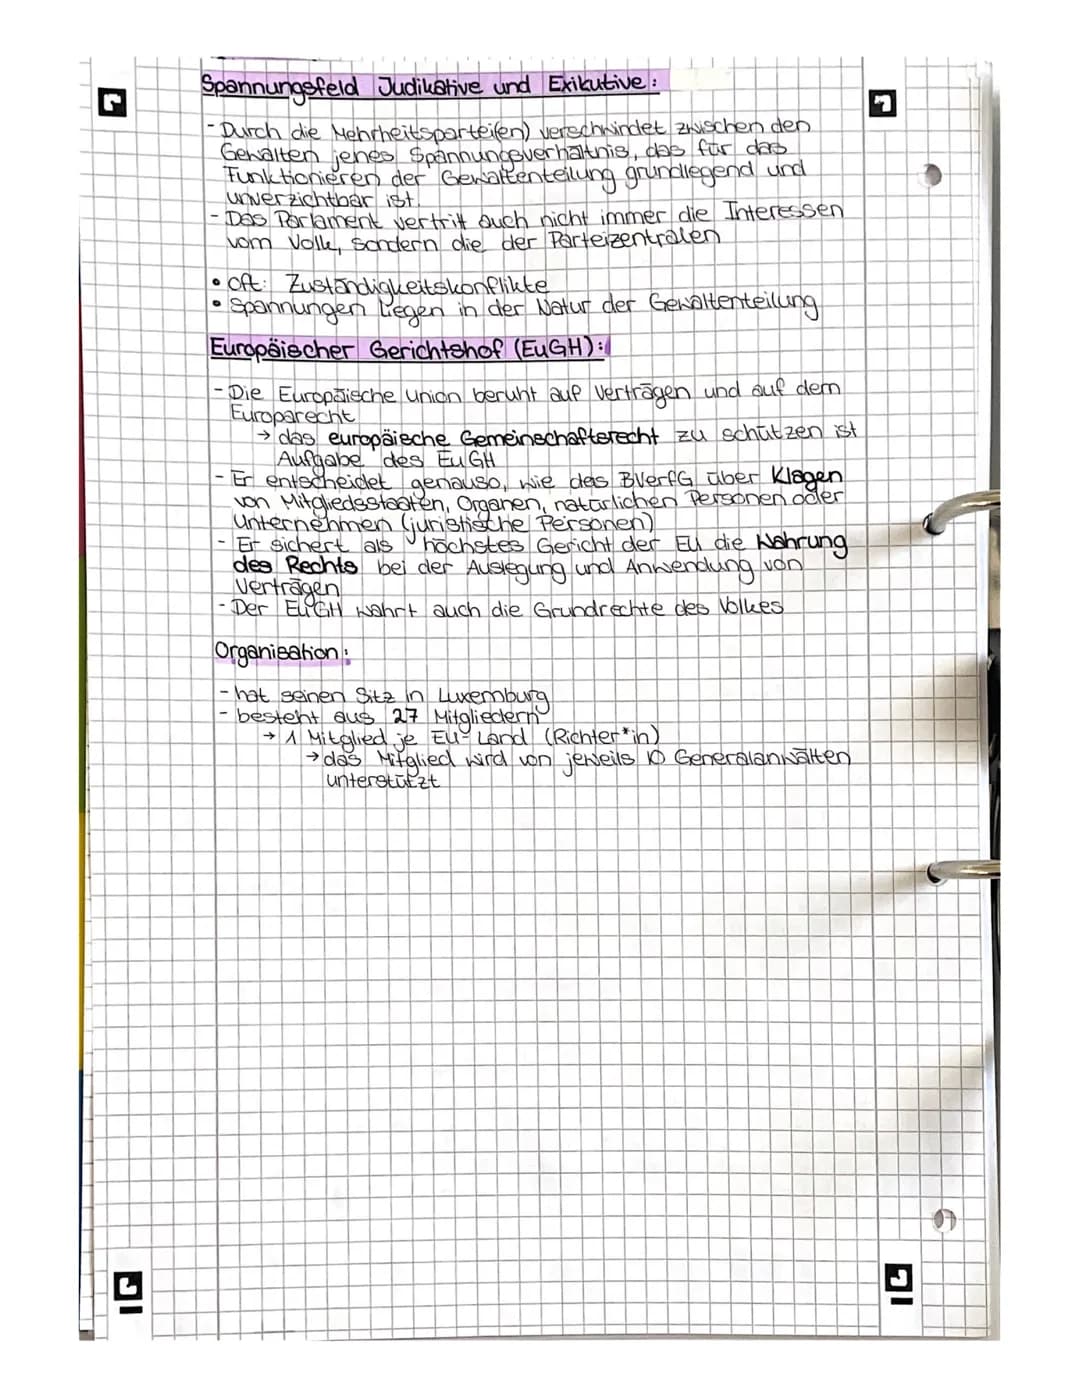 Spannungsfeld Judikative und Exikutive:
- Durch die Mehrheitspartei(en) verschwindet zwischen den
Gewalten jenes Spannungsverhältnis, das für das
Funktionieren der Gewaltenteilung grundlegend und
unverzichtbar ist.
- Das Parlament vertrit auch nicht immer die Interessen
vom Volk, sondern die der Parteizentralen
• oft: Zuständigkeitskonflikte
• Spannungen liegen in der Natur der Gewaltenteilung
Europäischer Gerichtshof (EuGH):
- Die Europäische Union beruht auf Verträgen und auf dem
Europarecht
→ das europäische Gemeinschaftsrecht zu schützen ist
Aufgabe des EuGH
- Er entscheidet genauso, wie das BVerfG über Klagen
von Mitgliedsstaaten, Organen, natürlichen Personen oder
Unternehmen (juristische Personen)
- Er sichert als höchstes Gericht der EU die Wahrung
des Rechts bei der Auslegung und Anwendung von
Verträgen
- Der EuGH wahrt auch die Grundrechte des Volkes
Organisation:
- hat seinen Sitz in Luxemburg
- besteht aus 27 Mitgliedern
→ 1 Mitglied je EU-Land (Richter*in)
→ das Mitglied wird von jeweils 10 Generalanwälten
unterstützt